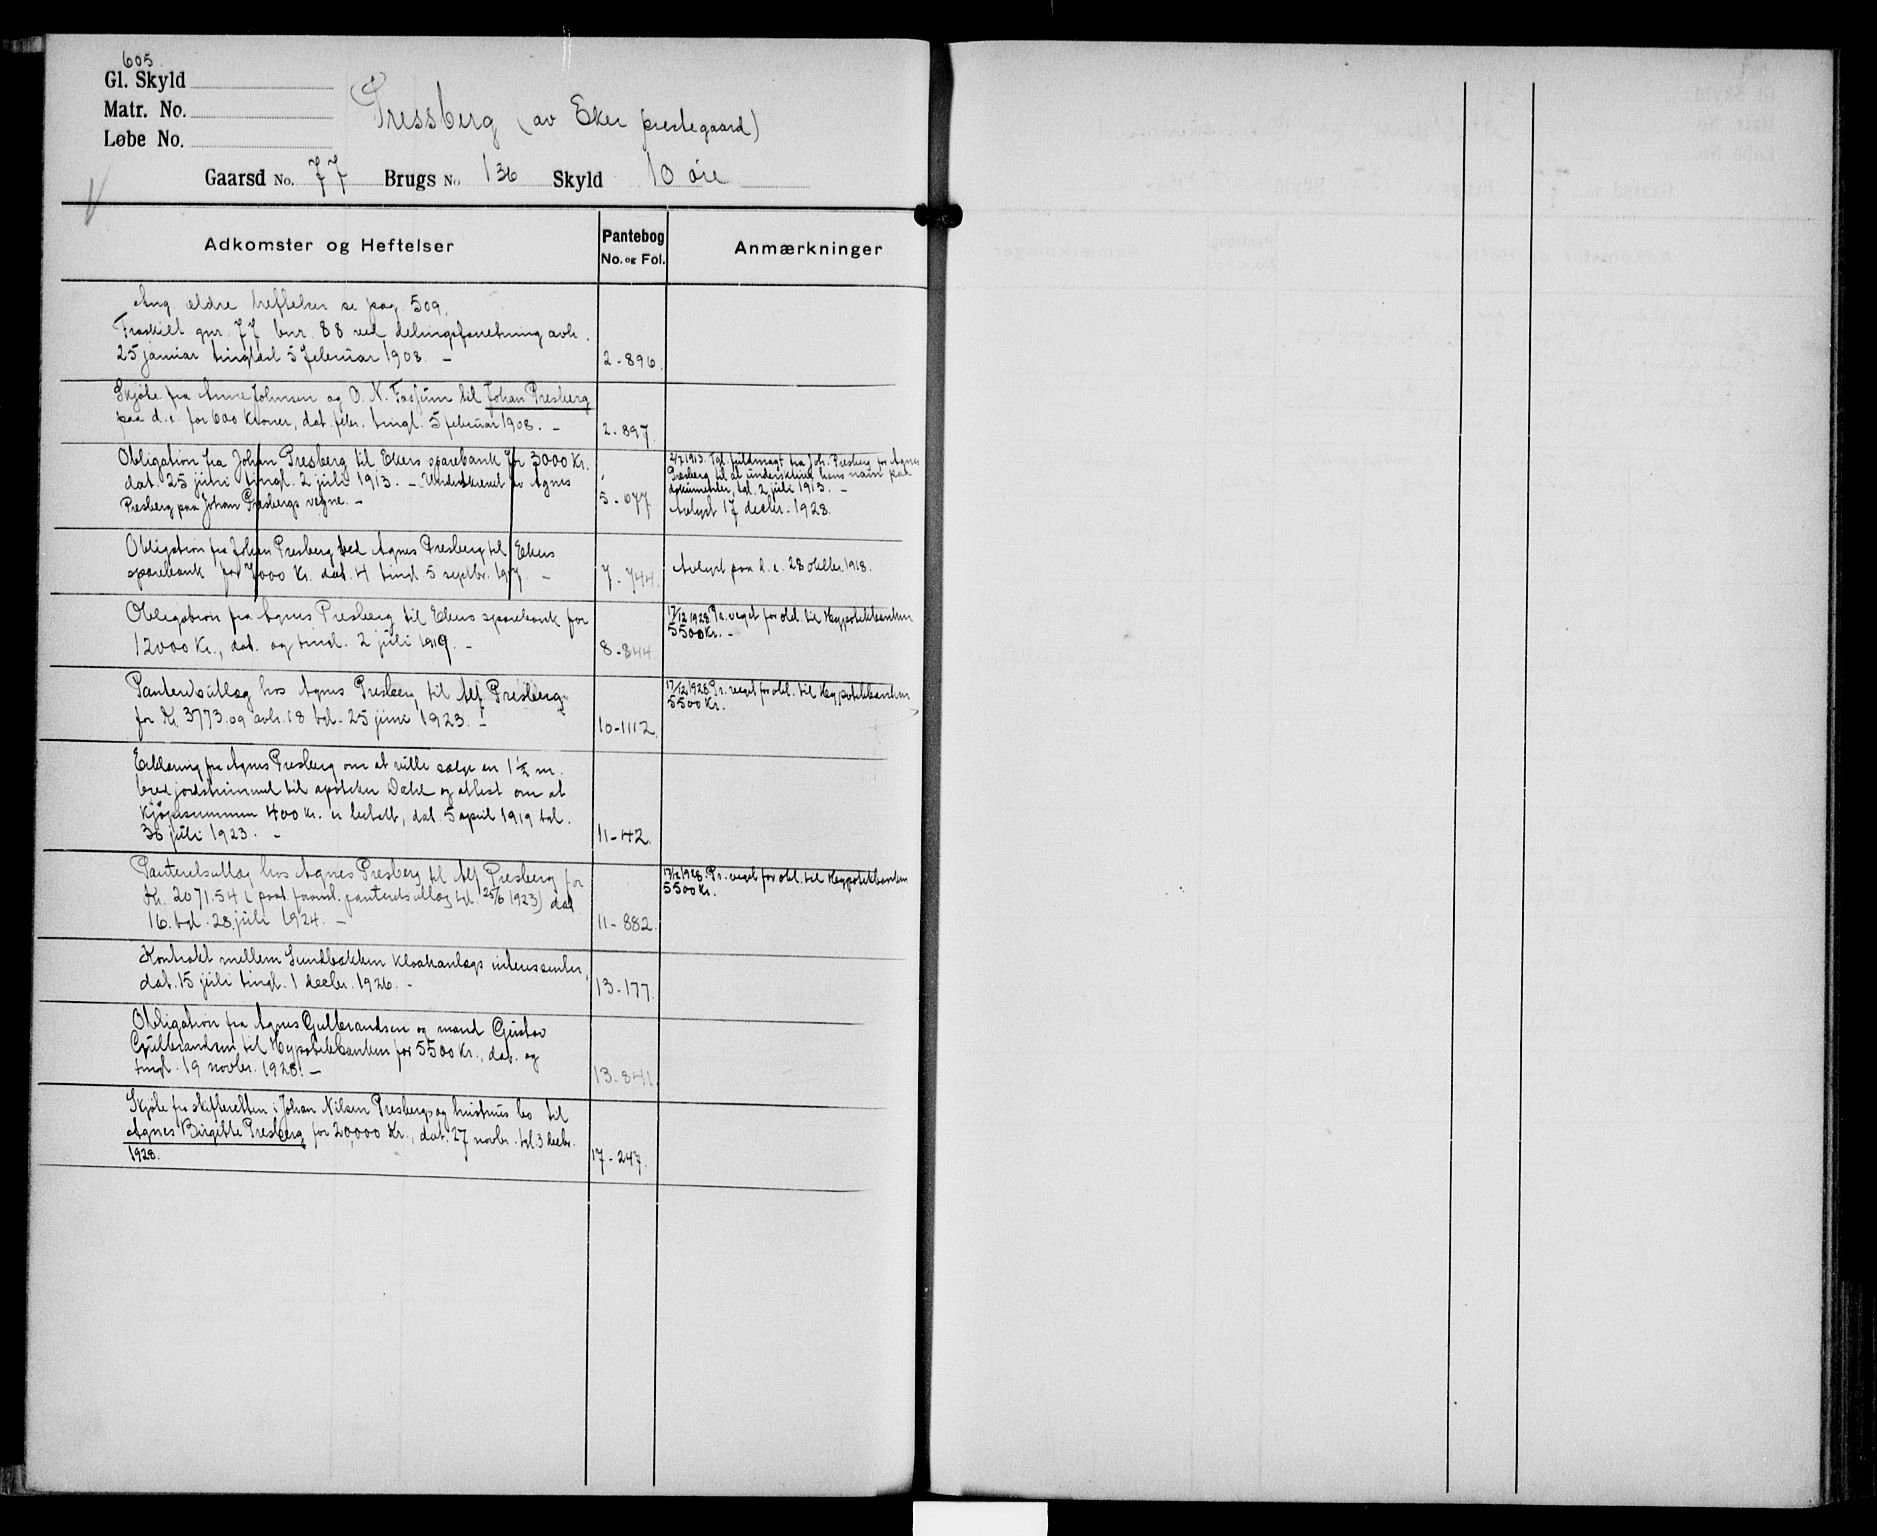 605
Gl. Skyld
Matr. No.
Løbe No.
Pressberg (av Eker prestegaard)
Gaarsd No. 77 Brugs No 136 Skyld 10 öre
Adkomster og Heftelser
Pantebog
No. og Fol.
Anmærkninger
Ang ældre heftelser se pag. 509.
Fraskilt gnr. 77 bnr. 88 ved delingsforretning avh.
25 januar tinglæst 5 februar 1908. –
2-896.
Skjöte fra Anne Johnsen og O. N. Fossum til Johan Presberg
paa d. e. for 600 Kroner, dat. febr. tingl. 5 februar 1908. –
2-897
Obligation fra Johan Presberg til Ekers sparebank for 3000 Kr.
dat. 25 juni tingl. 2 juli 1913. – Underskrevet av Agnes
Presberg paa Johan Presbergs vegne. –
5-077
2/7 1913. Tgl. fuldmagt fra Joh. Presberg for Agnes
Presberg til at underskrive hans navn paa
dokumenter, tgl. 2 juli 1913. –
Avlyst 17 decbr. 1928.
Obligation fra Johan Presberg ved Agnes Presberg til Ekers
sparebank for 7000 Kr. dat. 4 tingl 5 septbr. 1917. –
7-744
Avlyst paa d. e. 28 oktbr. 1918.
Obligation fra Agnes Presberg til Ekers sparebank for
12000 Kr., dat. og tingl. 2 juli 1919. –
8-844
17/12 1928. Pr. veget for obl. til Hypotekbanken
5500 Kr. –
Panteutlæg hos Agnes Presberg til Alf Presberg
for Kr. 3773.09 avh. 18 tgl. 25 juni 1923. –
10-1112
17/12 1928. Pr. veget for obl. til Hypotekbanken
5500 Kr.
Erklæring fra Agnes Presberg om at ville sælge en 1½ m.
bred jordstrimmel til apoteker Dahl og attest om at
kjøpesummen 400 Kr. er betalt, dat. 5 april 1919 tgl.
30 juli 1923. –
11-42.
Panteretsutlæg hos Agnes Presberg til Alf Presberg for
Kr. 2071.54 ( panteretsutlæg tgl. 25/6 1923) dat
16. tgl. 28. juli 1924. –
11-882.
17/12 1928. Pr. veget for obl. til Hypotekbanken
5500 Kr.
Kontrakt mellem Sundbakken kloakanlægs interessenter,
dat. 15 juli tingl. 1 decbr. 1926. –
13-177.
Obligation fra Agnes Gulbrandsen og mand Gustav
Gulbrandsen til Hypotekbanken for 5500 Kr., dat. og
tingl. 19 novbr. 1928. –
13-841.
Skjöte fra skifteretten i Johan Nilsen Presbergs og hustrus bo til
Agnes Birgitte Presberg for 20,000 Kr., dat. 27 novbr. tgl. 3 decbr.
1928.
17-247.